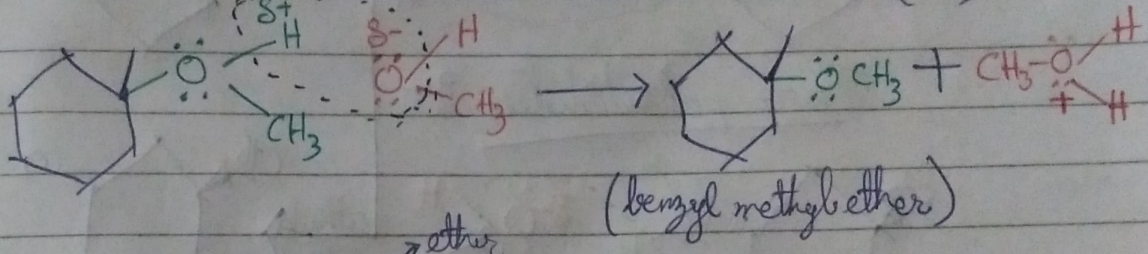 δ+
H
O
CH3
δ-
H
O
CH3
→
OCH3 + CH3-O
H
+
H
(benzyl methyl ether)
→ ether